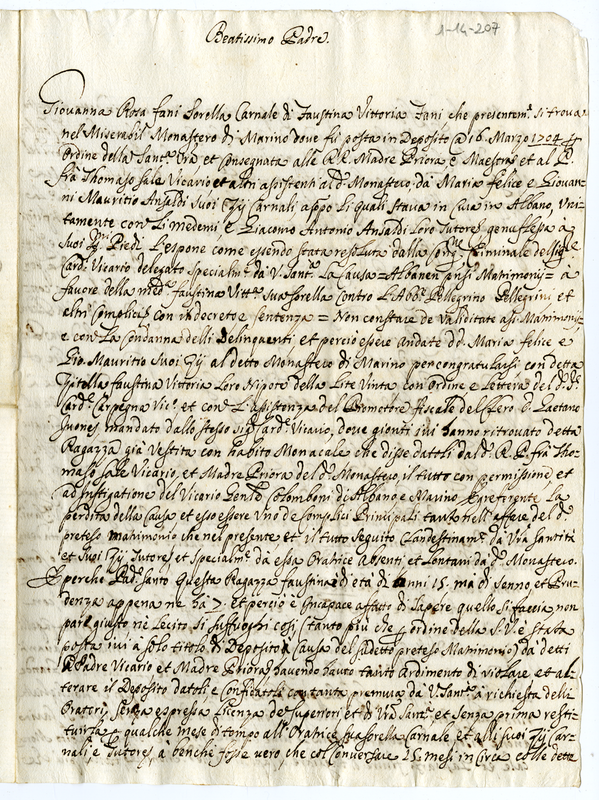 1-14-207
Beatissimo Padre.
Giovanna Rosa Fani Sorella Carnale di Faustina Vittoria Fani che presentem.e si trova
nel Miserabil Monastero di Marino dove fù posta in Deposito @ 16. Marzo 1704
Ordine della Sant.à Vra et consegnata alle RR. Madre Priora e Maestra et al P.
frà Thomaso Sale Vicario et altri assistenti al d.o Monastero da Maria Felice e Giovan-
ni Mauritio Ansaldi Suoi Zij Carnali appo li quali stava in Cura in Albano, Uni-
tamente con li medemi e Giacomo Antonio Ansaldi loro Tutores genuflessa a
Suoi Piedi L'espone come essendo stata resoluta dalla Criminale del Sig.r
Card. Vicario delegato specialm.e da V. Sant.à La Causa = Albanen Matrimonij = à
favore della med.a Faustina Vitt.a sua sorella contro L'Abb.e Pellegrino Pellegrini et
altri Complici con indecreto e sentenza = Non constare de Validitate Matrimonij =
e con la Condanna delli Delinquenti et perciò essere andate dd. Maria Felice e
Gio. Mauritio suoi Zij al detto Monastero di Marino per congratularsi con detta
Zitella Faustina Vittoria loro Nipote della Lite Vinta con Ordine e Lettera del d.o S.r
Card. Carpegna Vic.o et con L'assistenza del Promottore fiscale del Clero D. Gaetano
mandato dallo stesso Sig. Card. Vicario, dove gionti ivi hanno ritrovato detta
Ragazza già Vestita con habito Monacale che disse dattli dal d. R. P. frà Tho-
maso Sale Vicario, et Madre Priora del d.o Monastero il tutto con permissione et
ad instigatione del Vicario Gen.le Colomboni di Albano e Marino La
perdita della Causa et esso essere Uno de Complici Principali tanto nell'affare del d.o
preteso matrimonio che nel presente et il tutto seguito Clandestinam.e da Vra Santità
et Suoi Zij Tutores et specialm.e da essa Oratrice absenti et lontani da d.o Monastero.
E perche Pad. Santo questa Ragazza Faustina è di età di anni 15. ma di Senno, et Pru-
denza appena ne hà 7. et perciò è incapace affatto di Sapere quello si faccia, non
pare giusto nè Lecito si suffoghi così (tanto più che ordine della S. V. è stata
posta ivi a solo titolo di Deposito à Causa del sudetto preteso Matrimonio) da detti
Padre Vicario et Madre Priora havendo hauto tanto ardimento di violare et al-
terare il Deposito dattli e confidattli con tanta premura da V. Sant.à à richiesta delli
Oratori, senza espressa Licenza de Superiori et di Vra Sant.à et senza prima resti-
tuirla qualche mese di tempo all'Oratrice sua sorella Carnale et alli suoi Zij Car-
nali e Tutores, a benche fosse vero, che col Conversare 25 mesi in Circa colle dette